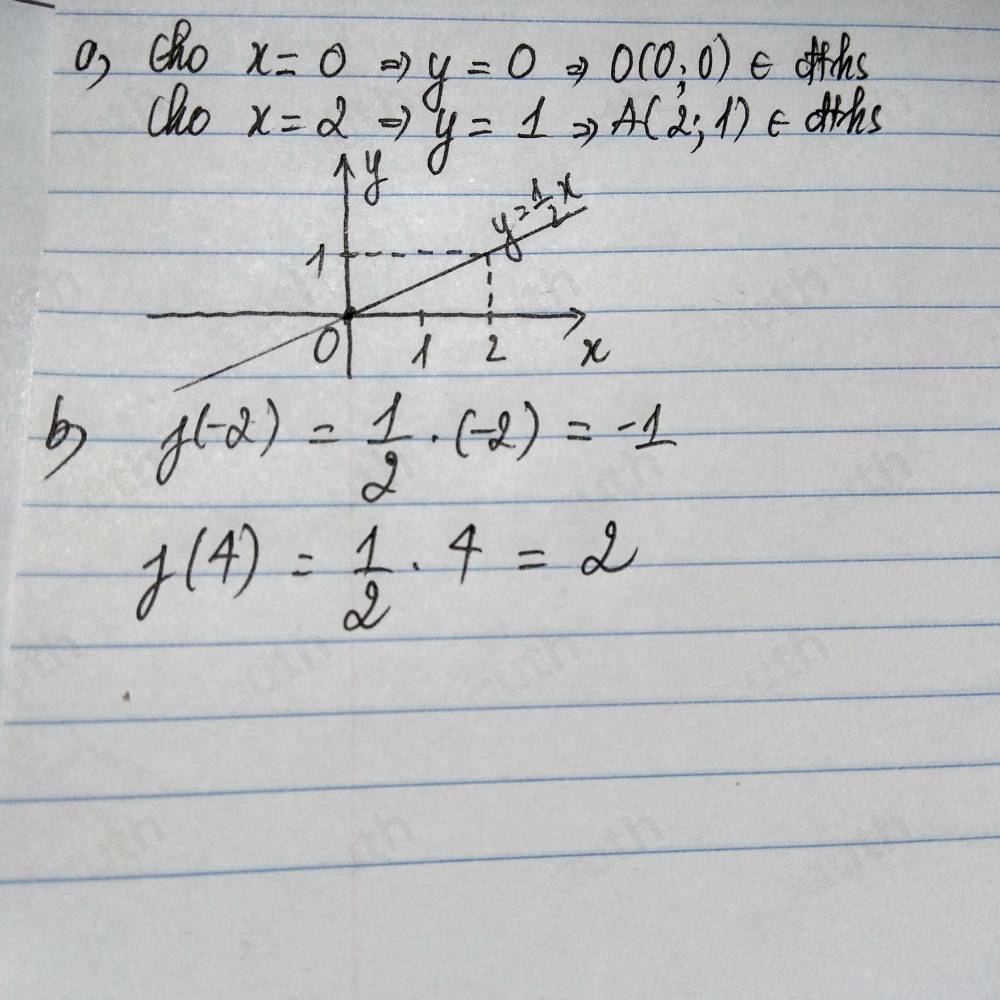 a, Cho x = 0 => y = 0 => O(0; 0) ∈ đths
Cho x = 2 => y = 1 => A(2; 1) ∈ đths
y
y = 1/2 x
1
O 1 2 x
b, f(-2) = 1/2 . (-2) = -1
f(4) = 1/2 . 4 = 2